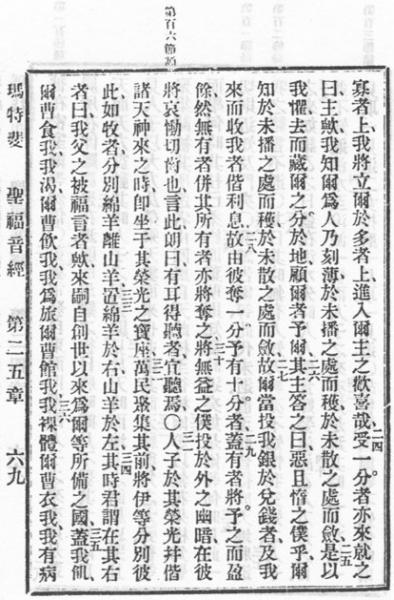 寡者上、我將立爾於多者上、進入爾主之歡喜哉。受一分者亦來就之
二四
曰主歟、我知爾爲人乃刻薄、於未播之處而穫、於未散之處而斂、是以
二五
我懼去而藏爾之分於地、顧爾者予爾。其主答之曰、惡且惰之僕乎、爾
二六
知於未播之處而穫、於未散之處而斂、故爾當投我銀於兌錢者、及我
二七
來而收我者偕利息。故由彼奪一分予有十分者。蓋有者將予之而盈
二八 二九
餘然無有者、併其所有者亦將奪之。將無益之僕投於外之幽暗、在彼
三十
將哀慟切齒也。言此朗曰、有耳得聽者宜聽焉○人子於其榮光、并偕
三一
諸天神來之時、卽坐于其榮光之寶座、萬民聚集其前、將伊等分別彼
此如牧者分別綿羊離山羊、置綿羊於右、山羊於左、其時君謂在其右
三三 三四
者曰、我父之被福言者歟、來嗣自創世以來爲爾等所備之國、蓋我飢、
三五
爾曹食我、我渴、爾曹飲我、我爲旅、爾曹館我、我裸體、爾曹衣我、我有病
三六
瑪特斐 聖福音經 第二五章 六九
第百六節